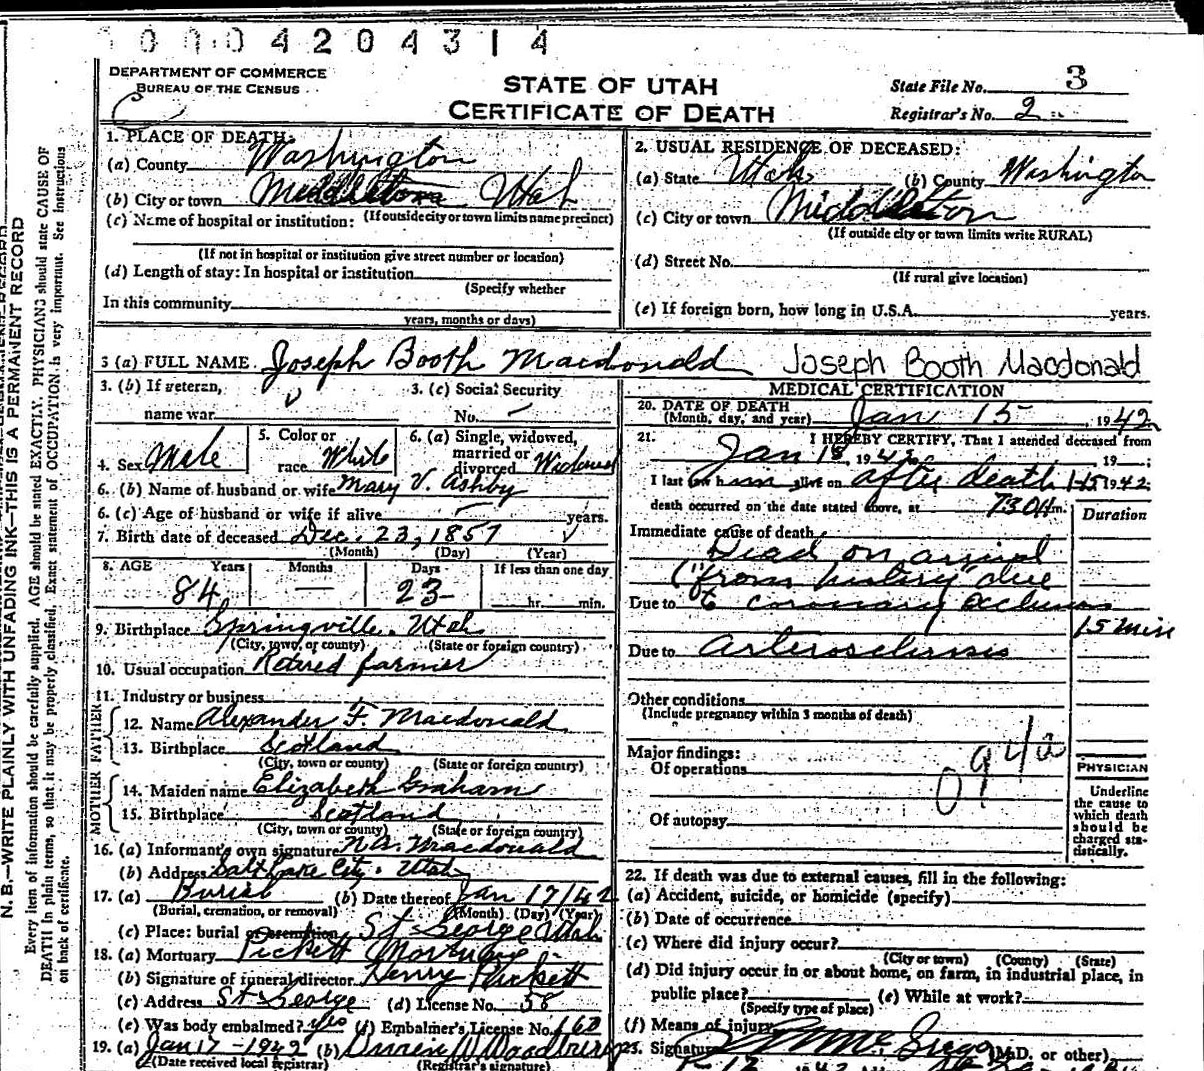 0004204314
DEPARTMENT OF COMMERCE
BUREAU OF THE CENSUS
STATE OF UTAH
CERTIFICATE OF DEATH
State File No. 3
Registrar's No. 2
1. PLACE OF DEATH:
(a) County Washington
(b) City or town Middleton Utah
(c) Name of hospital or institution: (If outside city or town limits name precinct)
(If not in hospital or institution give street number or location)
(d) Length of stay: In hospital or institution
(Specify whether
In this community
years, months or days)
2. USUAL RESIDENCE OF DECEASED:
(a) State Utah (b) County Washington
(c) City or town Middleton
(If outside city or town limits write RURAL)
(d) Street No.
(If rural give location)
(e) If foreign born, how long in U.S.A. years.
3 (a) FULL NAME Joseph Booth Macdonald Joseph Booth Macdonald
3. (b) If veteran,
name war
3. (c) Social Security
No. —
4. Sex Male
5. Color or
race White
6. (a) Single, widowed,
married or
divorced Widowed
6. (b) Name of husband or wife Mary V. Ashby
6. (c) Age of husband or wife if alive — years.
7. Birth date of deceased Dec. 23, 1857
(Month) (Day) (Year)
8. AGE Years Months Days If less than one day
84 — 23 hr. min.
9. Birthplace Springville. Utah
(City, town, or county) (State or foreign country)
10. Usual occupation Retired farmer
11. Industry or business
FATHER
12. Name Alexander F. Macdonald
13. Birthplace Scotland
(City, town or county) (State or foreign country)
MOTHER
14. Maiden name Elizabeth Graham
15. Birthplace Scotland
(City, town or county) (State or foreign country)
16. (a) Informant's own signature Macdonald
(b) Address Salt Lake City. Utah
17. (a) Burial (b) Date thereof Jan 17/42
(Burial, cremation, or removal) (Month) (Day) (Year)
(c) Place: burial or cremation St George Utah
18. (a) Mortuary Pickett Mortuary
(b) Signature of funeral director Henry Pickett
(c) Address St George (d) License No. 58
(e) Was body embalmed? yes (f) Embalmer's License No. 160
19. (a) Jan 17-1942 (b) Woodbury
(Date received local registrar) (Registrar's signature)
MEDICAL CERTIFICATION
20. DATE OF DEATH
(Month, day, and year) Jan 15 1942
21. I HEREBY CERTIFY, That I attended deceased from
Jan 15 1942 19
I last saw him alive on after death 1-15 1942;
death occurred on the date stated above, at 730 m.
Duration
Immediate cause of death
Dead on arrival
("from history" due
Due to to coronary occlusion
15 min
Due to Arterosclerosis
Other conditions
(Include pregnancy within 3 months of death)
Major findings:
Of operations
094a
Of autopsy
PHYSICIAN
Underline
the cause to
which death
should be
charged sta-
tistically.
22. If death was due to external causes, fill in the following:
(a) Accident, suicide, or homicide (specify)
(b) Date of occurrence
(c) Where did injury occur?
(City or town) (County) (State)
(d) Did injury occur in or about home, on farm, in industrial place, in
public place? (e) While at work?
(Specify type of place)
(f) Means of injury
23. Signature McGregor (M.D. or other)
N. B.—WRITE PLAINLY WITH UNFADING INK—THIS IS A PERMANENT RECORD
Every item of information should be carefully supplied. AGE should be stated EXACTLY. PHYSICIANS should state CAUSE OF
DEATH in plain terms, so that it may be properly classified. Exact statement of OCCUPATION is very important. See instructions
on back of certificate.